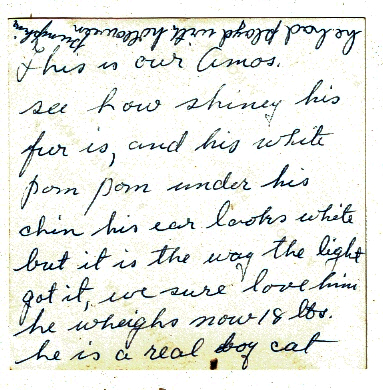 This is our Amos.
see how shiney his
fur is, and his white
pom pom under his
chin his ear looks white
but it is the way the light
got it, we sure love him
he wheighs now 18 lbs.
he is a real boy cat
he had ployd with holloween
pumpkin